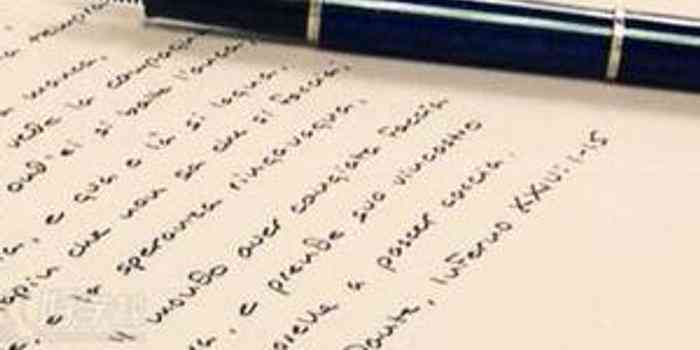 manca,
vede la campagna
ond'ei si batte l'anca,
e qua e là si lagna,
che non sa che si faccia;
e la speranza ringavagna,
mondo aver cangiata faccia
e prende suo vincastro
a pascer caccia.
Dante, Inferno XXIV: 1-15